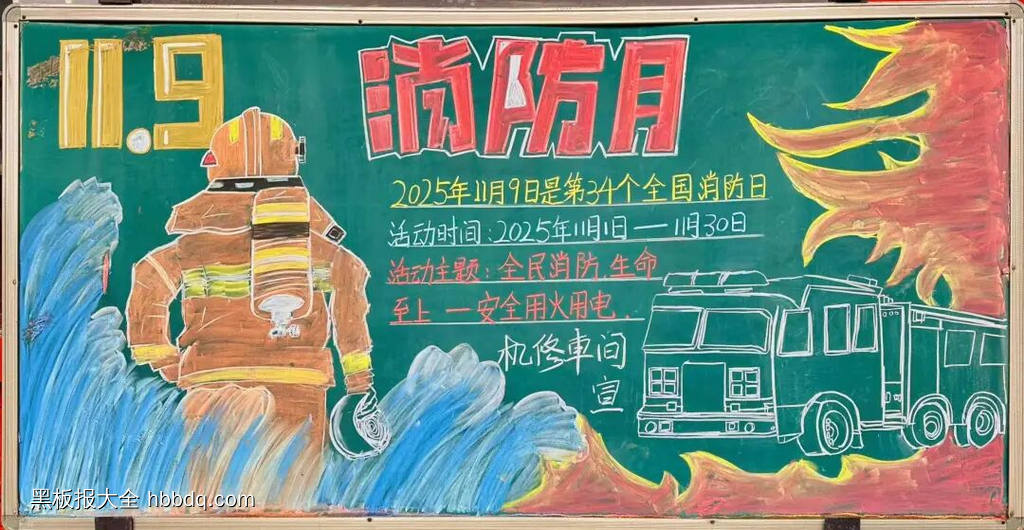 11.9
消防月
2025年11月9日是第34个全国消防日
活动时间:2025年11月1日——11月30日
活动主题:全民消防、生命
至上 一安全用火用电.
机修車间
宣
黑板报大全 hbbdq.com